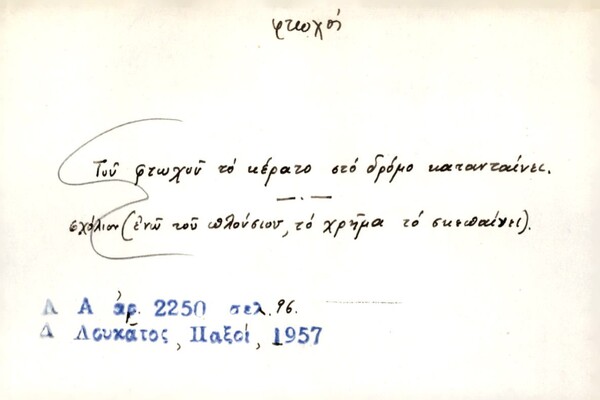 φτωχοί
Τοῦ φτωχοῦ τό κέρατο στό δρόμο καταντaίνει.
σχόλιον (ἐνῶ τοῦ πλούσιου, τό χρῆμα τό σκεπαίνει).
Λ Α ἀρ. 2250 σελ. 96.
Δ Λουκᾶτος, Παξοί, 1957